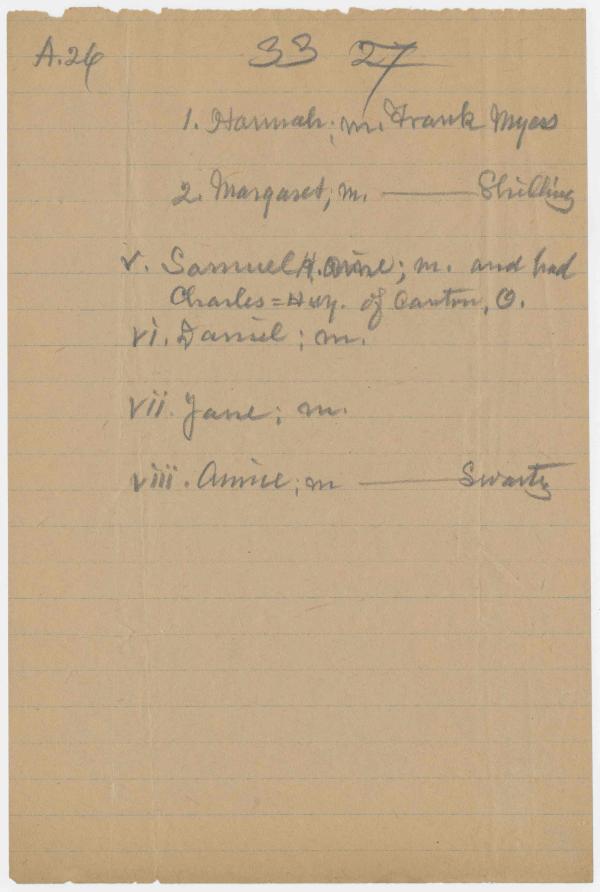 A.26 33 27
1. Hannah; m. Frank Myers
2. Margaret, m. —— Shilling
v. Samuel H. ; m. and had
Charles = of Canton, O.
vi. Daniel; m.
vii. Jane; m.
viii. Annie; m —— Swartz